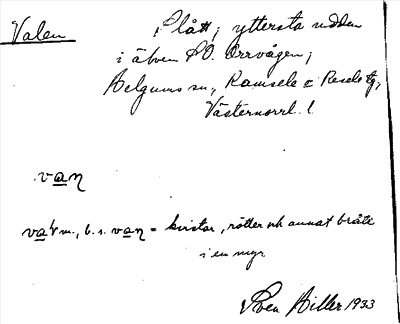 Valen
Slått, yttersta udden
i älven SO. Orrvågen;
Helgums sn, Ramsele o Resele tg,
Västernorrl. l.
van
val m., b. s. van = kvistar, rötter och annat bråte
i en myr
Sven Hiller 1933